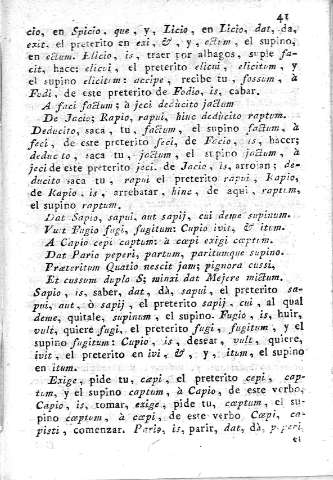 41
cio, en Spicio, que, y, Licio, en Licio, dat, da,
exit, el preterito en exi, &, y, ectum, el supino,
en ectum. Elicio, is, traer por albagos, suple fa-
cit, hace: elicui, el preterito elicui, elicitum, y
el supino elicitum: accipe, recibe tu, fossum, à
Fodi, de este preterito de Fodio, is, cabar.
A faci factum; à jeci deducito jactum
De Jacio; Rapio, rapui, hinc deducito raptum.
Deducito, saca, tu, factum, el supino factum, à
feci, de este preterito feci, de Facio, is, hacer;
deducto, saca tu, jactum, el supino jactum, à
jeci de este preterito jeci, de Jacio, is, arrojar; de-
ducito saca tu, rapui el preterito rapui, Rapio,
de Rapio, is, arrebatar, hinc, de aqui, raptum,
el supino raptum.
Dat Sapio, sapui, aut sapij, cui deme supinum.
Vult Fugio fugi, fugitum: Cupio ivit, & itum.
A Capio cepi captum: à cœpi exigi cœptum.
Dat Pario peperi, partum, paritumque supino.
Præteritum Quatio nescit jam; pignora cussi,
Et cussum duplo S; minxi dat Mejere mictum.
Sapio, is, saber, dat, dà, sapui, el preterito sa-
pui, aut, ò sapij, el preterito sapij, cui, al qual
deme, quitale, supinum, el supino. Fugio, is, huir,
vult, quiere fugi, el preterito fugi, fugitum, y el
supino fugitum: Cupio, is, desear, vult, quiere,
ivit, el preterito en ivi, &, y, itum, el supino
en itum.
Exige, pide tu, cæpi, el preterito cepi, cap-
tum, y el supino captum, à Capio, de este verbo,
Capio, is, tomar, exige, pide tu, cœptum, el su-
pino cœptum, à cœpi, de este verbo Cœpi, cœ-
pisti, comenzar. Pario, is, parir, dat, dà, peperi,
el